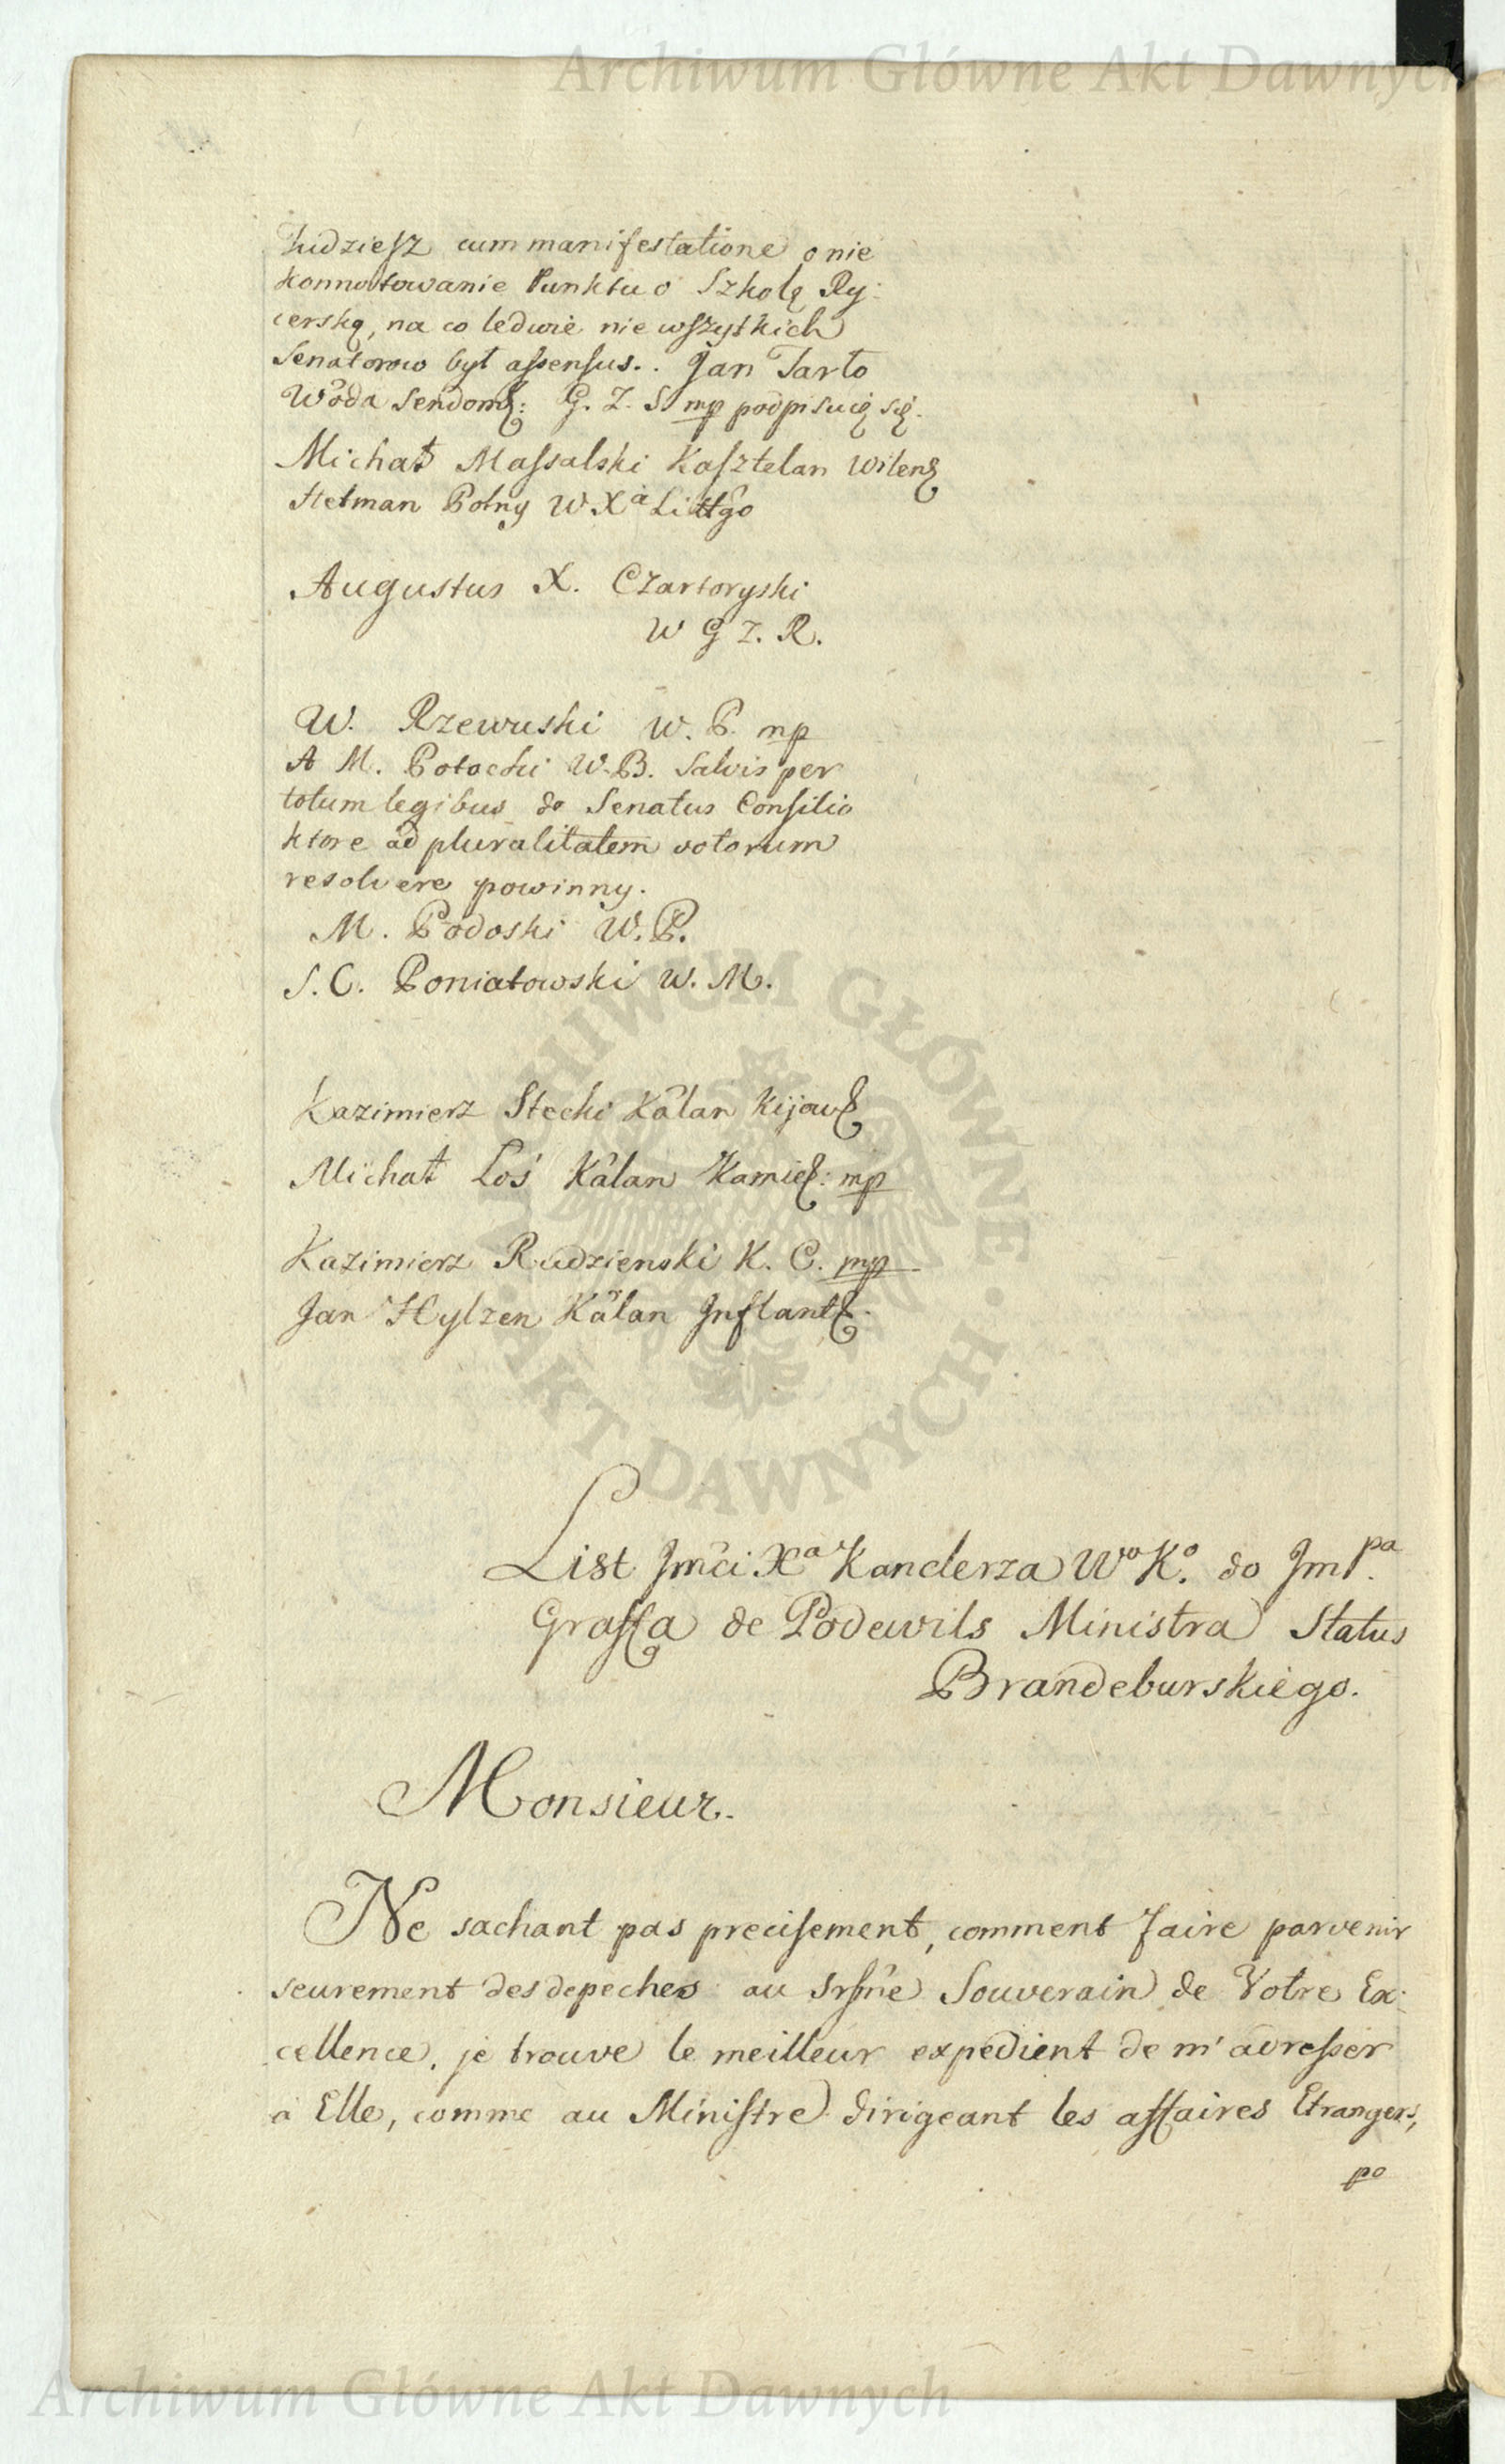 Archiwum Główne Akt Dawnych
Tudziesz cum manifestatione o nie
konnotowanie Punktu o Szkolę Ry:
cerską, na co ledwie nie wszytkich
Senatorow był assensus.. Jan Tarło
Woda Sendom: G. Z. S mp podpisuię się.
Michał Massalski Kasztelan Wilens
Hetman Polny W Xa Littgo
Augustus X. Czartoryski
W G Z. R.
W. Rzewuski W. P. mp
A M. Potocki W. B. Salvis per
totum legibus do Senatus Consilio
ktore ad pluralitatem votorum
resolvere powinny.
M. Podoski W. P.
S. C. Poniatowski W. M.
Kazimierz Stecki Kalan Kijows
Michał Łoś Kalan Kamies: mp
Kazimierz Rudzienski K. C. mp
Jan Hylzen Kalan Inflants.
ARCHIWUM GŁÓWNE AKT DAWNYCH
List Jmci Xa Kanclerza Wo Ko. do Jmpa.
Graffa de Podewils Ministra Status
Brandeburskiego.
Monsieur.
Ne sachant pas precisement, comment faire parvenir
seurement des depeches au Srsme Souverain de Votre Ex:
cellence, je trouve le meilleur expedient de m'adresser
a Elle, comme au Ministre dirigeant les affaires Etrangers,
po
Archiwum Główne Akt Dawnych